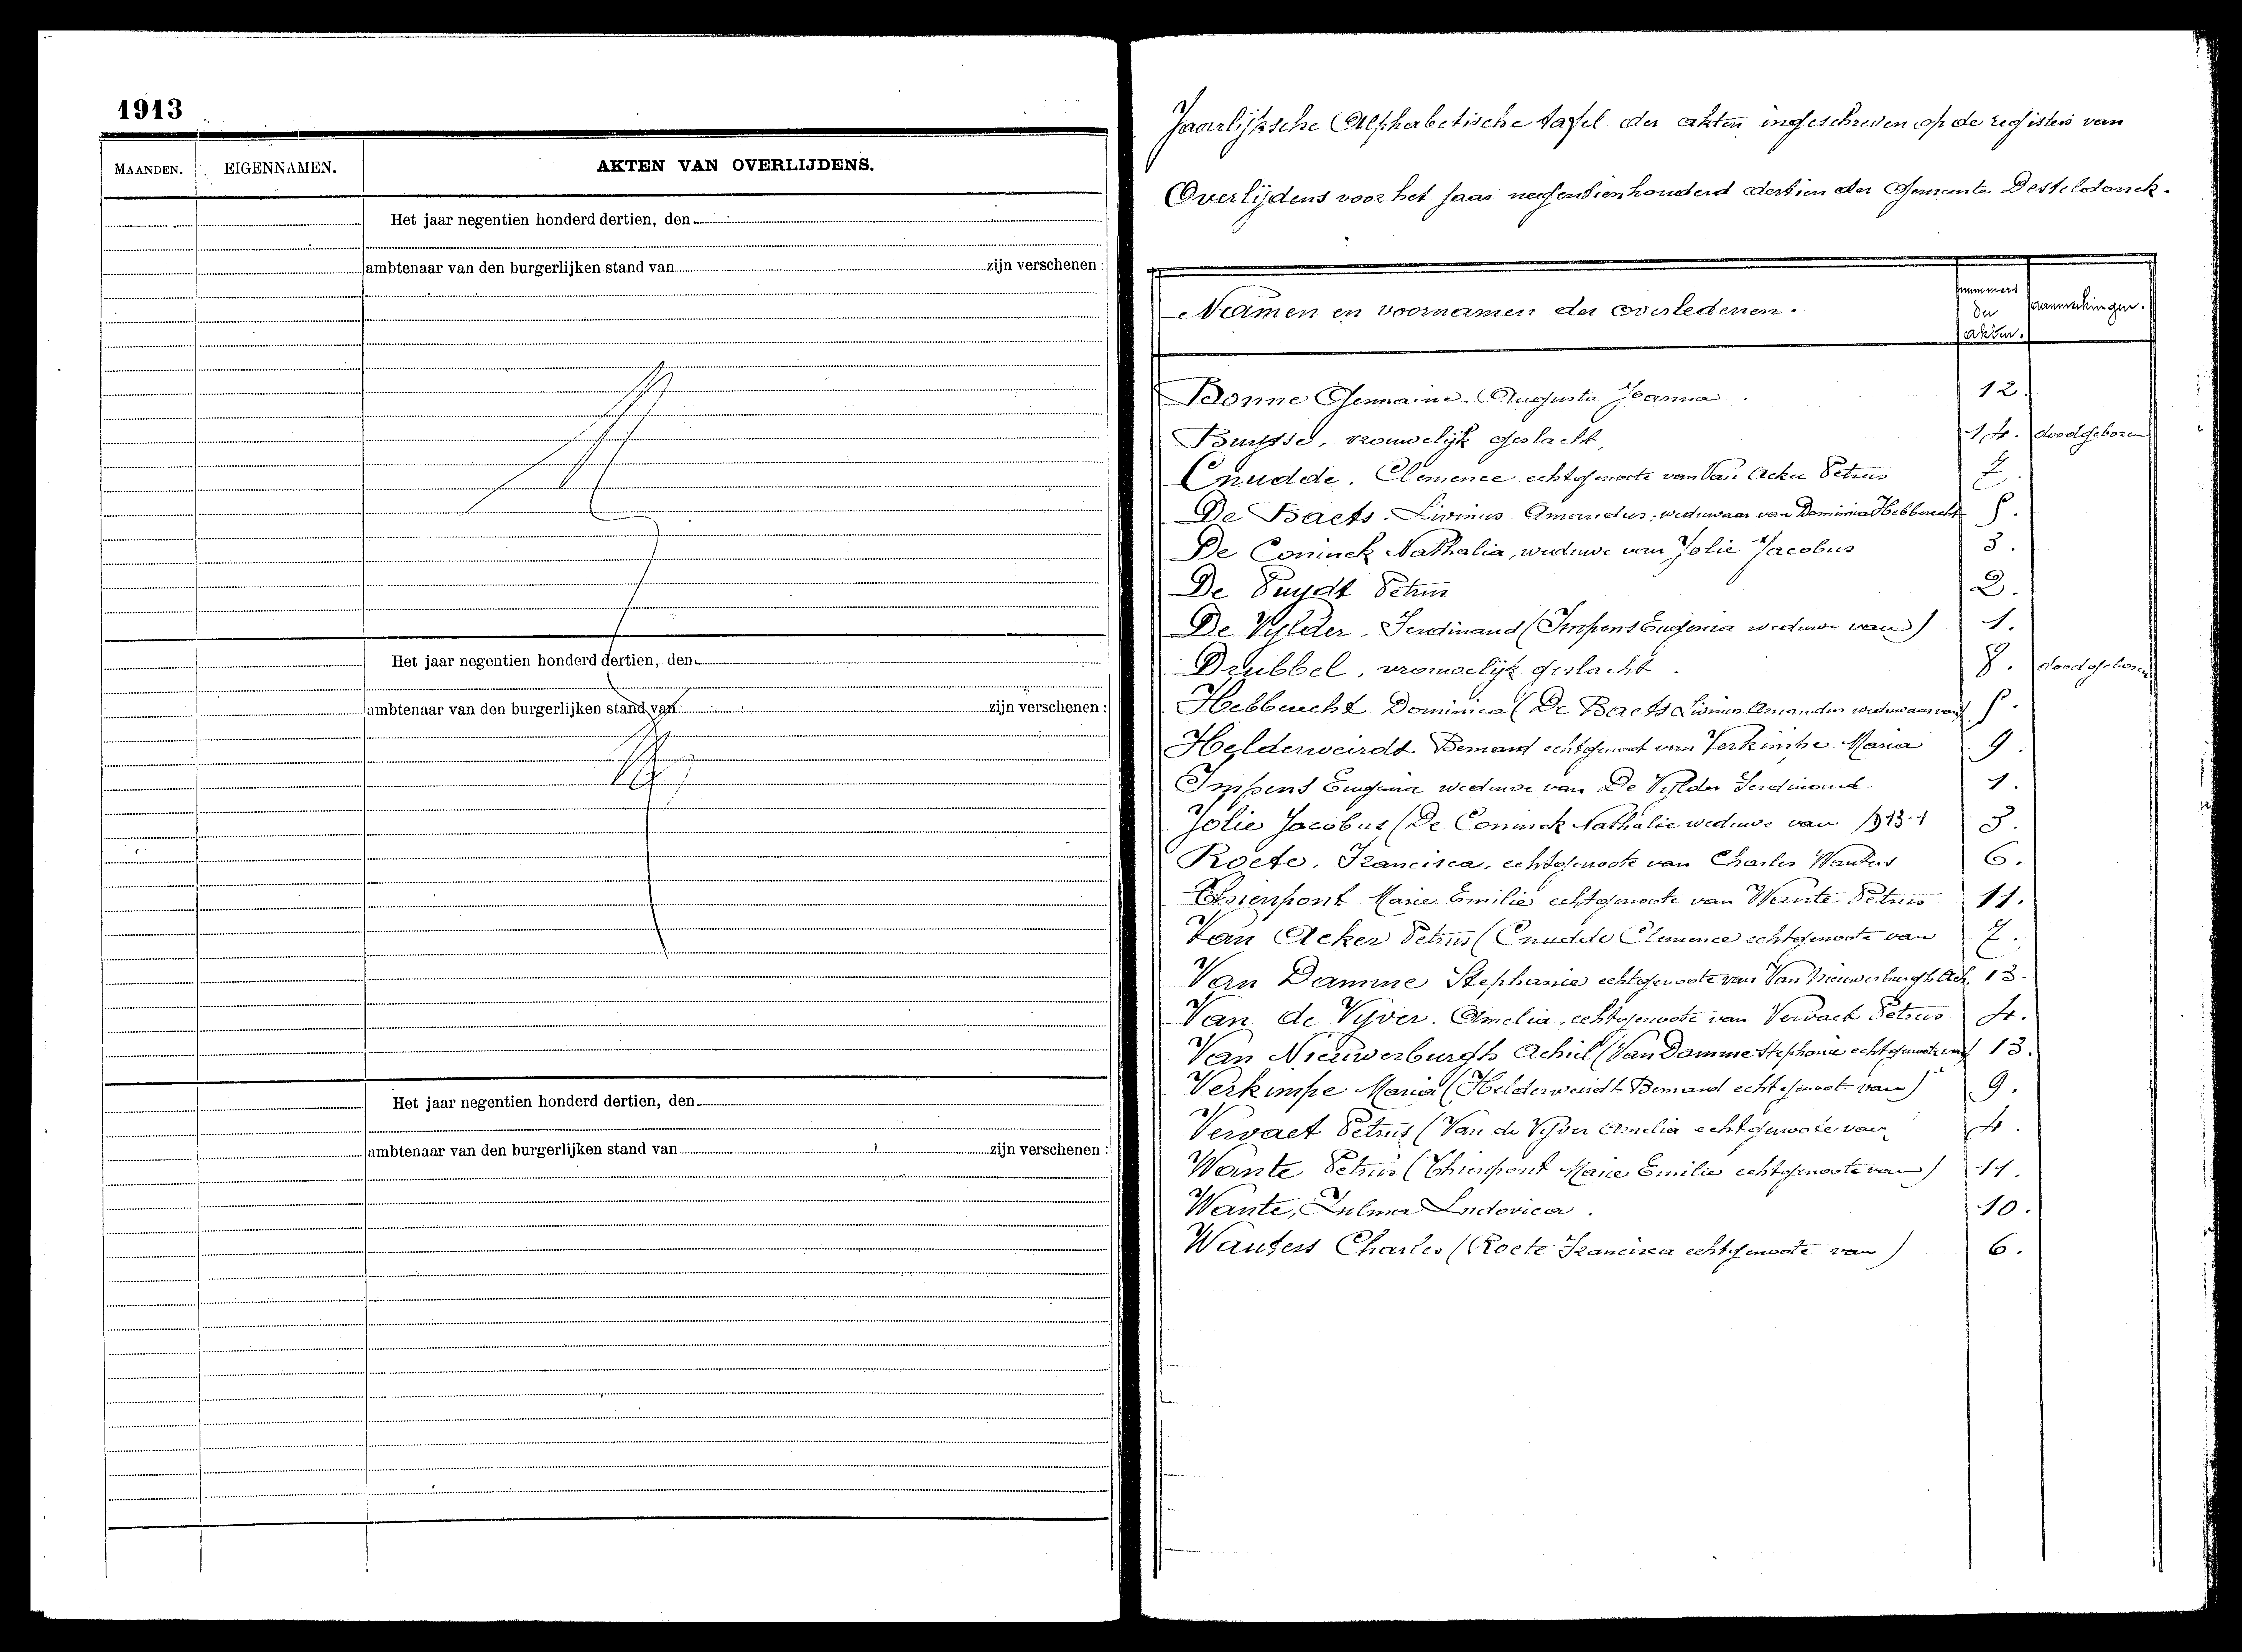 1913
MAANDEN. EIGENNAMEN. AKTEN VAN OVERLIJDENS.
Het jaar negentien honderd dertien, den
ambtenaar van den burgerlijken stand van zijn verschenen :
Het jaar negentien honderd dertien, den
ambtenaar van den burgerlijken stand van zijn verschenen :
Het jaar negentien honderd dertien, den
ambtenaar van den burgerlijken stand van zijn verschenen :
Jaarlijksche Alphabetische tafel der akten ingeschreven op de registers van
Overlijdens voor het jaar negentienhonderd dertien der Gemeente Desteldonck.
Namen en voornamen der overledenen. nummers der akten. aanmerkingen.
Bonne Germaine Augusta Joanna 12.
Buysse, vrouwelijk geslacht, 14. doodgeboren
Cnudde. Clemence echtgenoote van Van Acker Petrus 7.
De Baets. Livinus Amandus, weduwaar van Dominica Hebbrecht 5.
De Coninck Nathalia, weduwe van Jolie Jacobus 3.
De Puydt Petrus 2.
De Vylder. Ferdinand (Impens Eugenia weduwe van) 1.
Drubbel, vrouwelijk geslacht. 8. doodgeboren
Hebbrecht Dominica (De Baets Livinus Amandus weduwaar van) 5.
Helderweirdt. Bernard echtgenoot van Verkimpe Maria 9.
Impens Eugenia weduwe van De Vylder Ferdinand. 1.
Jolie Jacobus (De Coninck Nathalie weduwe van 3.
Roete. Francisca, echtgenoote van Charles Wauters 6.
Thienpont Marie Emilie echtgenoote van Wante Petrus 11.
Van Acker Petrus (Cnudde Clemence echtgenoote van 7.
Van Damme Stephanie echtgenoote van Van Nieuwerburgh Ach. 13.
Van de Vyver. Amelia, echtgenoote van Vervaet Petrus 4.
Van Nieuwerburgh Achiel (Van Damme Stephanie echtgenoote van) 13.
Verkimpe Maria (Helderweirdt Bernard echtgenoot van) 9.
Vervaet Petrus (Van de Vyver Amelia echtgenoote van 4.
Wante Petrus (Thienpont Marie Emilie echtgenoote van) 11.
Wante, Zulma Ludovica. 10.
Wauters Charles (Roete Francisca echtgenoote van) 6.